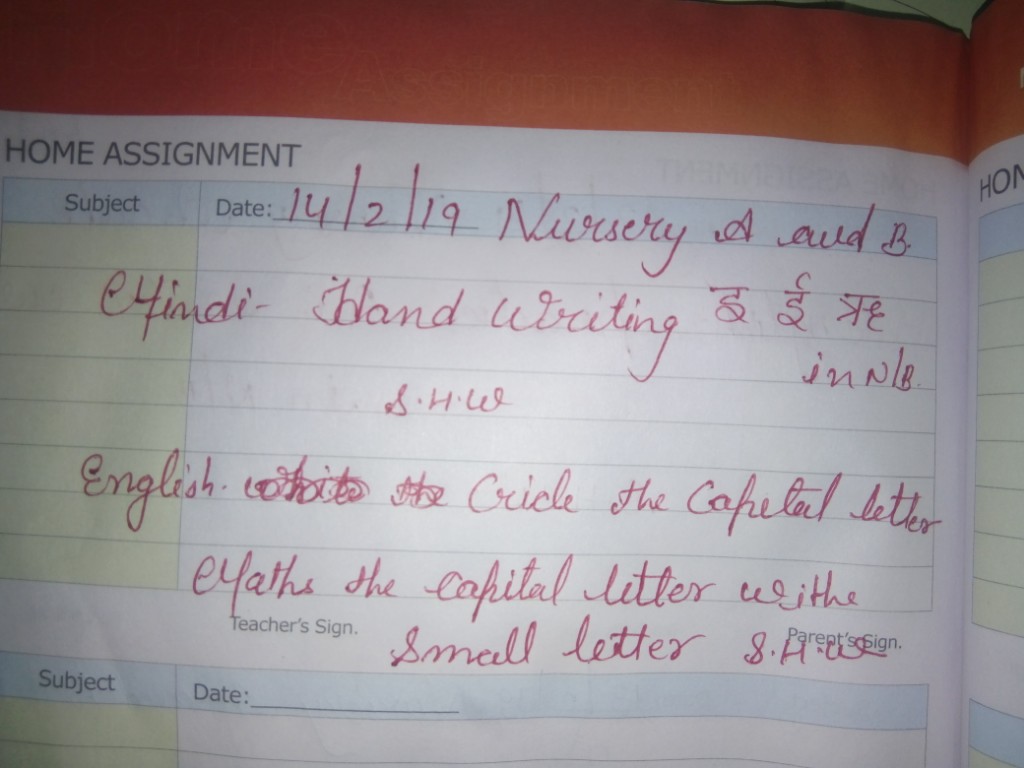 HOME ASSIGNMENT
Subject Date: 14/2/19 Nursery A and B.
Hindi- Hand writing इ ई ऋ
in N/B.
S.H.W
English. Cricle the Capital letter
Maths the capital letter withe
Teacher's Sign. Parent's Sign.
Small letter S.H.W
Subject Date:
HON